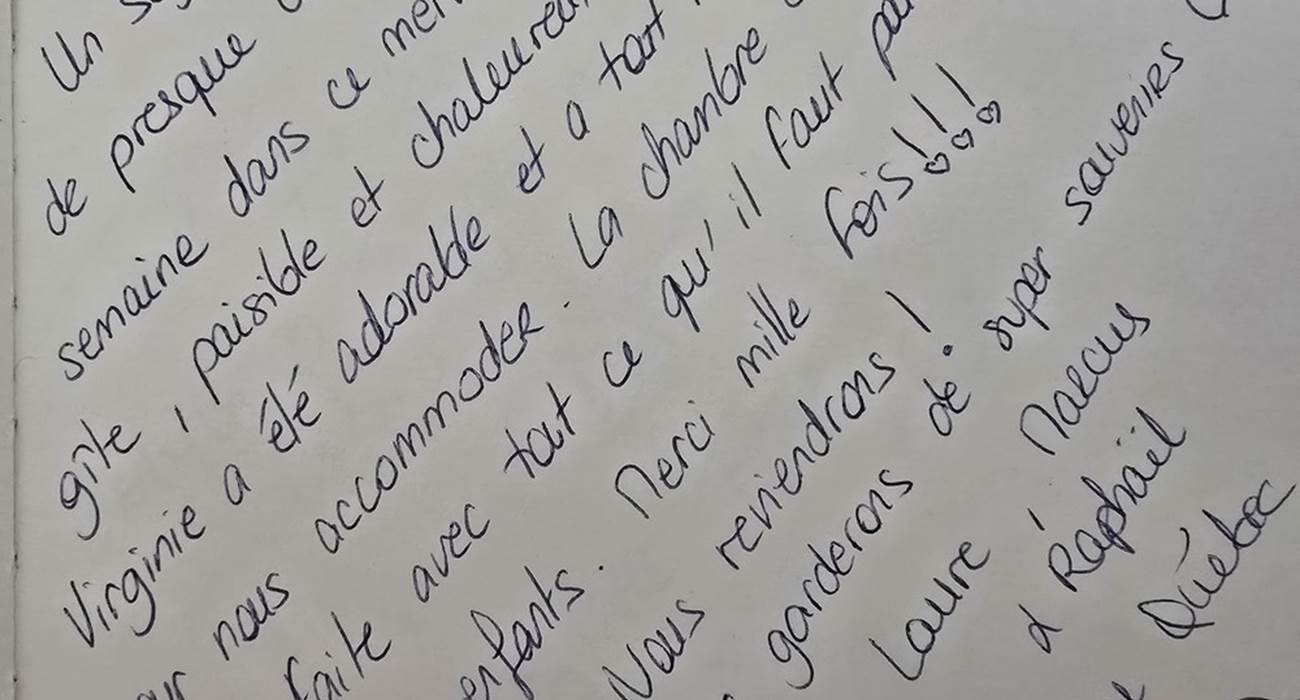 Un
de presque
semaine dans ce
gîte, paisible et
Virginie a été adorable et a tout
nous accommoder. La chambre
avec tout ce qu'il faut
enfants. Merci mille fois!!!
Nous reviendrons!
garderons de super souvenirs
Laure, Marcus
& Raphaël
Québec